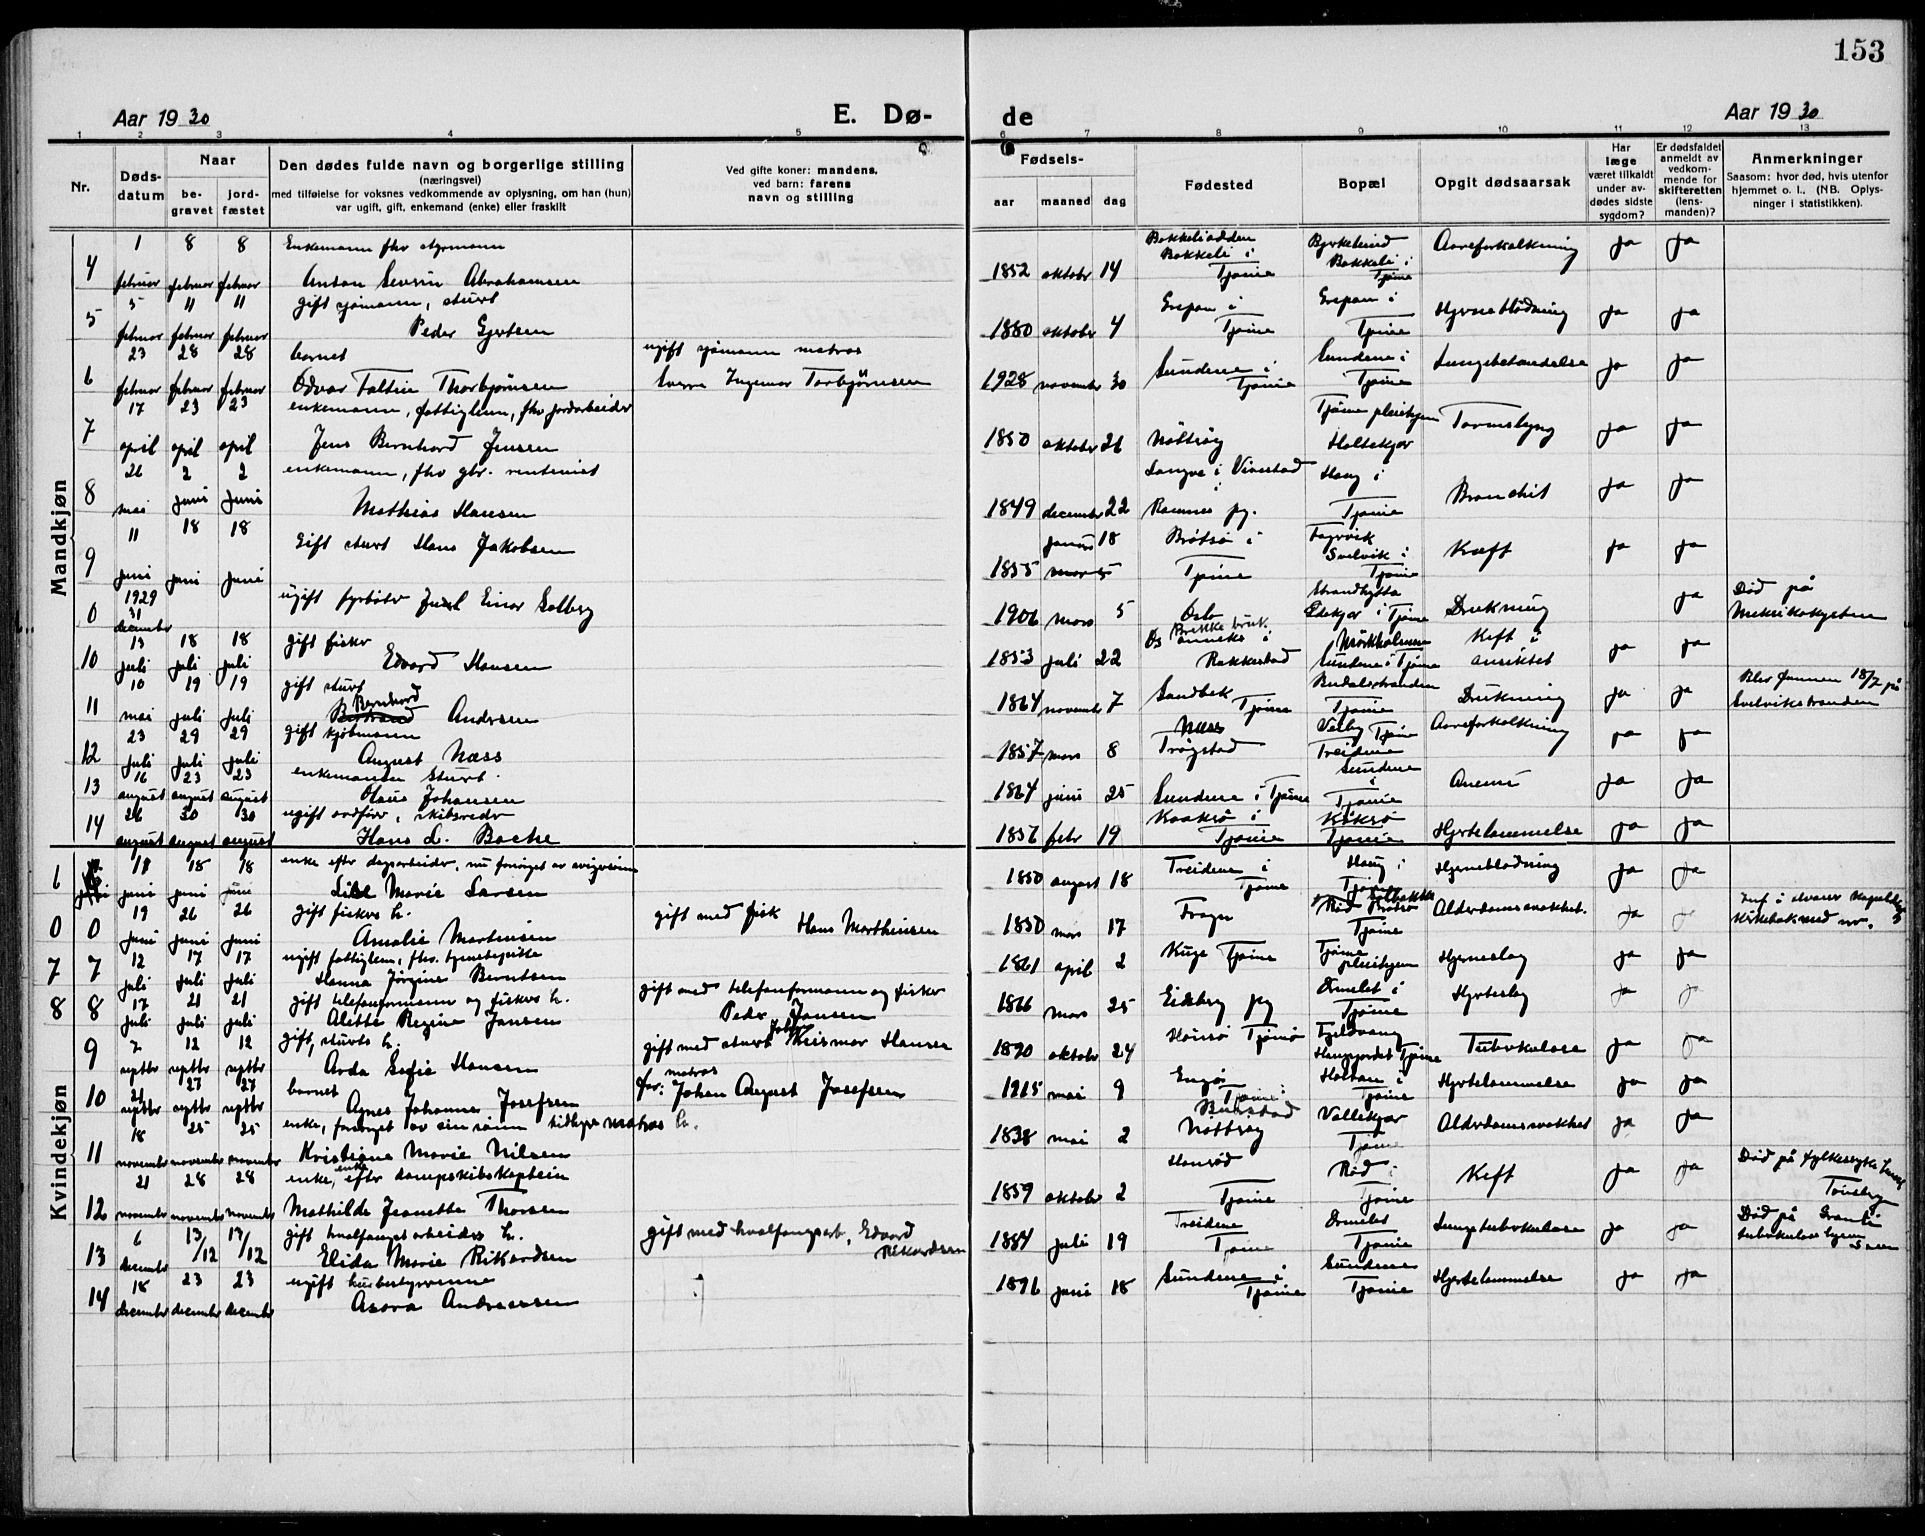 153
Aar 1930 E. Dø- de Aar 1930
1 2 3 4 5 6 7 8 9 10 11 12 13
Nr.
Døds-
datum
Naar
be-
gravet
jord-
fæstet
Den dødes fulde navn og borgerlige stilling
(næringsvei)
med tilføielse for voksnes vedkommende av oplysning, om han (hun)
var ugift, gift, enkemand (enke) eller fraskilt
Ved gifte koner: mandens,
ved barn: farens
navn og stilling
Fødsels-
aar maaned dag
Fødested
Bopæl
Opgit dødsaarsak
Har
læge
været tilkaldt
under av-
dødes sidste
sygdom?
Er dødsfaldet
anmeldt av
vedkom-
mende for
skifteretten
(lens-
manden)?
Anmerkninger
Saasom: hvor død, hvis utenfor
hjemmet o. l., (NB. Oplys-
ninger i statistikken).
Mandkjøn
1 8 8 Enkemann fhv styrmann
4 februar februar februar Anton Severin Abrahamsen 1852 oktober 14 Bakkeli i Tjøme Bakkeli i Tjøme Aareforkalkning ja ja
5 11 11 gift sjømann, stuert
5 februar februar februar Peder Gjertsen 1880 oktober 4 Grepan i Tjøme Grepan i Tjøme Hjerneblødning ja ja
23 28 28 barnet ugift sjømann matros
6 februar februar februar Odvar Faltin Thorbjørnsen Sverre Ingemar Torbjørnsen 1928 november 30 Sundene i Tjøme Sundene i Tjøme Lungebetændelse ja ja
17 23 23 enkemann, fattiglem, fhv jordarbeider
7 april april april Jens Bernhard Jensen 1850 oktober 26 Nøtterøy Tjøme pleiehjem Holtekjær Tarmslyng ja ja
26 2 2 enkemann, fhv gbr. rentenist
8 mai juni juni Mathias Hansen 1849 december 22 Langve i Vivestad Ramnes pg. Haug i Tjøme Bronchit ja ja
11 18 18 Gift stuert Hans Jakobsen
9 juni juni juni 1855 januar 18 Brøtsø i Tjøme Fagervik Svelvik i Tjøme Kræft ja ja
1929 31 december
0 ugift fyrbøter Juul Einar Solberg 1906 mars 5 Oslo Strandhytta i Tjøme Drukning ja Død på Meksikokysten
13 18 18 gift fisker
10 juli juli juli Edvard Hansen 1853 juli 22 Brekke bruk Os anneks i Rakkestad Mørkholmen Sundene i Tjøme Kreft i ansiktet ja ja
10 19 19 gift stuert
11 mai juli juli Bernhard Andersen 1864 november 7 Sandbek Tjøme Budalstranden Tjøme Drukning ja ja Blev funnen 18/7 på Svelvikstranden
23 29 29 gift kjøbmann
12 juli juli juli August Næss 1857 mars 8 Næss Trøgstad Tjøme Treidene Aareforkalkning ja ja
16 23 23 enkemann stuert
13 august august august Olaus Johansen 1864 juni 25 Sundene i Tjøme Sundene i Tjøme Anemi ja ja
26 30 30 ugift ordfører, skibsreder
14 august august august Hans L. Bache 1856 febr 19 Kaaksø i Tjøme Kåksø Tjøme Hjertelammelse ja ja
Kvindekjøn
11 18 18 enke efter dagarbeider, nu forsørget av svigersønn
6 juni juni juni Lise Marie Larsen 1850 august 18 Treidene i Tjøme Haug i Tjøme Hjerneblødning ja ja
19 26 26 gift fiskers h. gift med fisk Hans Marthinsen
0 0 juni juni juni Amalie Martinsen 1850 mars 17 Frogn Rød Brøtsø Tjøme Alderdomssvakhet. ja ja
12 17 17 ugift fattiglem, fhv. tjenestepike
7 7 juli juli juli Hanna Jørgine Berntsen 1861 april 2 Kuge Tjøme Tjøme pleiehjem Hjerneslag ja ja
17 21 21 gift telefonformann og fiskers h. gift med telefonformann og fisker
8 8 juli juli juli Alette Regine Jansen Peder Jansen 1866 mars 25 Eidsberg pg Ormelet i Tjøme Hjerteslag ja ja
7 12 12 gift, stuerts h. gift med stuert Hansen
9 septbr septbr septbr Arda Sofie Hansen 1890 oktober 24 Tjømø Fjeldvang Haugejordet Tjøme Tuberkulose ja ja
21 27 27 barnet matros
10 septbr septbr septbr Agnes Johanne Josefsen far: Johan August Josefsen 1915 mai 9 Engø Tjøme Holtan i Tjøme Hjertelammelse ja ja
18 25 25 enke, forsørget av sin sønn tidligere matros h.
11 november november november Kristiane Marie Nilsen 1838 mai 2 Nøtterøy Vallekjær Tjøme Alderdomssvakhet ja ja
21 28 28 enke, efter dampskibskaptein
12 november november november Mathilde Jeanette Thorsen 1859 oktober 2 Hønsrød Tjøme Rød i Tjøme Kreft ja ja Død på fylkessykehuset Tønsberg
6 13/12 13/12 gift hvalfangstarbeiders h. gift med hvalfangstarb. Edvard Rikardsen
13 decembr Elida Marie Rikardsen 1884 juli 19 Treidene Tjøme Ormelet Tjøme Lungetuberkulose ja ja Død på Granli tuberkulosehjem Sem
18 23 23 ugift husbestyrerinne
14 decembr decembr decembr Asora Andreassen 1896 juni 18 Sundene i Tjøme Sundene Tjøme Hjertelammelse ja ja